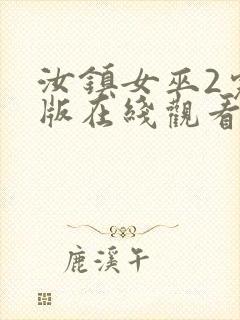 汝鎮女巫2
版在綫觀看
鹿溪午